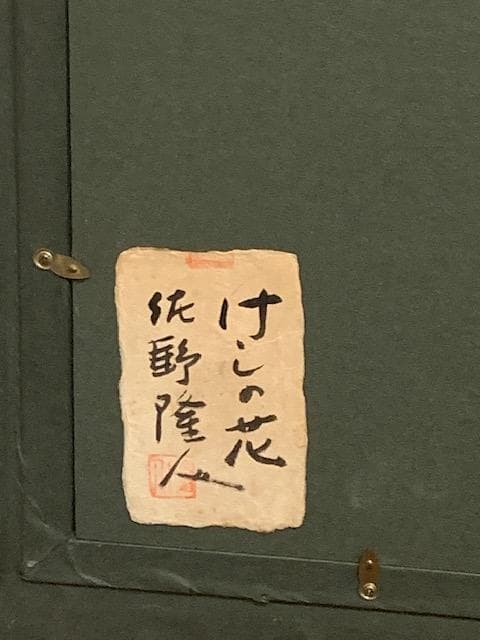 けしの花
佐野隆人